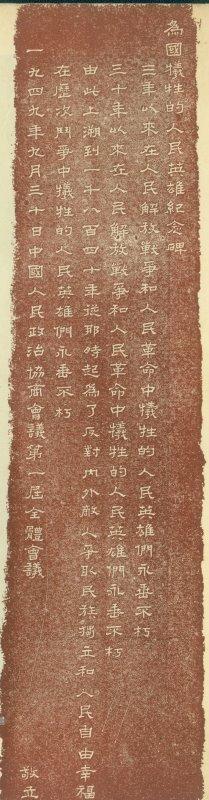 為國犧牲的人民英雄紀念碑
三年以來在人民解放戰爭和人民革命中犧牲的人民英雄們永垂不朽
三十年以來在人民解放戰爭和人民革命中犧牲的人民英雄們永垂不朽
由此上溯到一千八百四十年從那時起為了反對內外敵人爭取民族獨立和人民自由幸福
在歷次鬥爭中犧牲的人民英雄們永垂不朽
一九四九年九月三十日中國人民政治協商會議第一屆全體會議
敬立